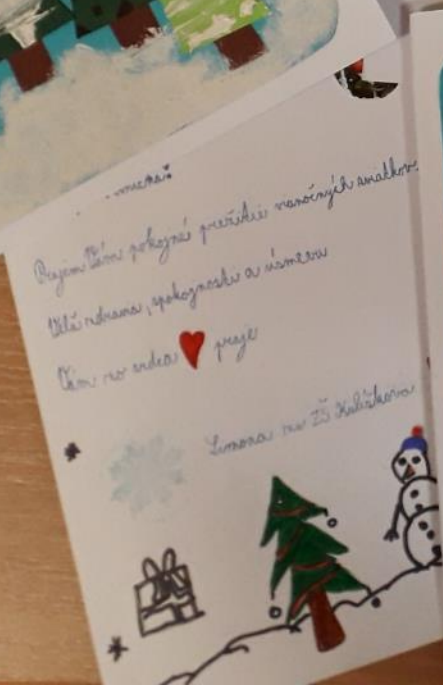 Prajem Vám pokojné prežitie vianočných sviatkov.
Veľa zdravia, spokojnosti a úsmevu
Vám zo srdca praje
Simona zo ZŠ